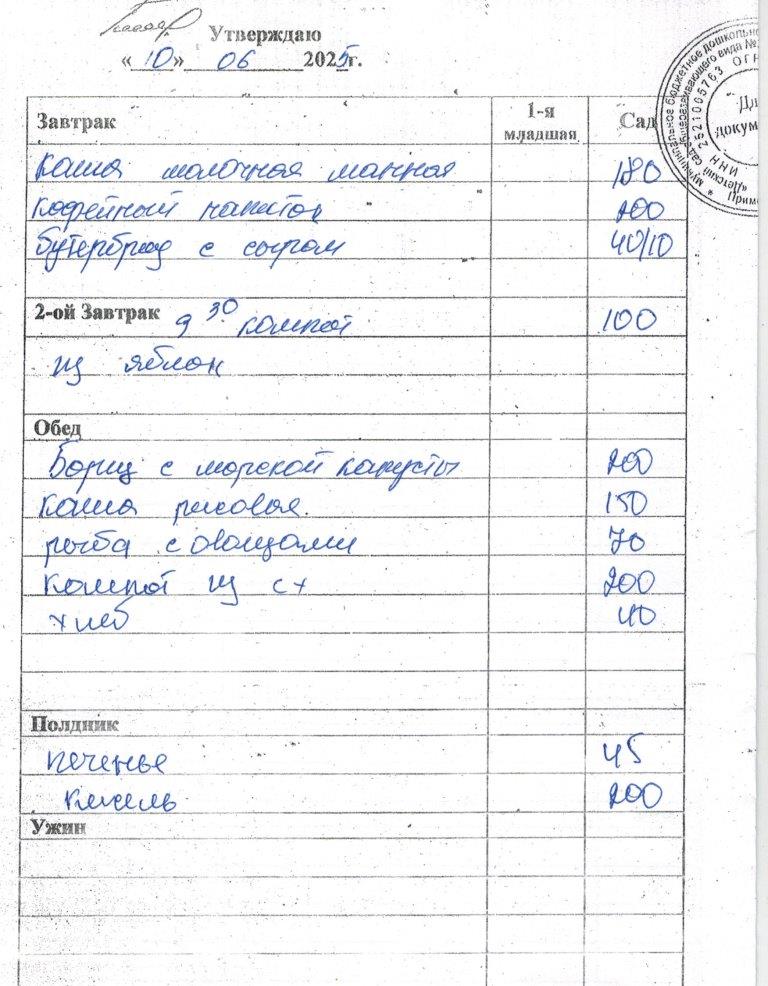 Утверждаю
«10» 06 2025г.
Завтрак 1-я младшая Сад
Каша молочная манная 180
Кофейный напиток 200
бутерброд с сыром 40/10
2-ой Завтрак 9 30 компот 100
из яблок
Обед
Борщ с морской капусты 200
Каша рисовая. 150
рыба с овощами 70
Компот из с х
200
хлеб 40
Полдник
печенье 45
Кисель 200
Ужин
муниципальное бюджетное дошкольное
общеразвивающего вида №
2521005763 ОГР
ИНН
«Детский сад
Прим
Дл
докум